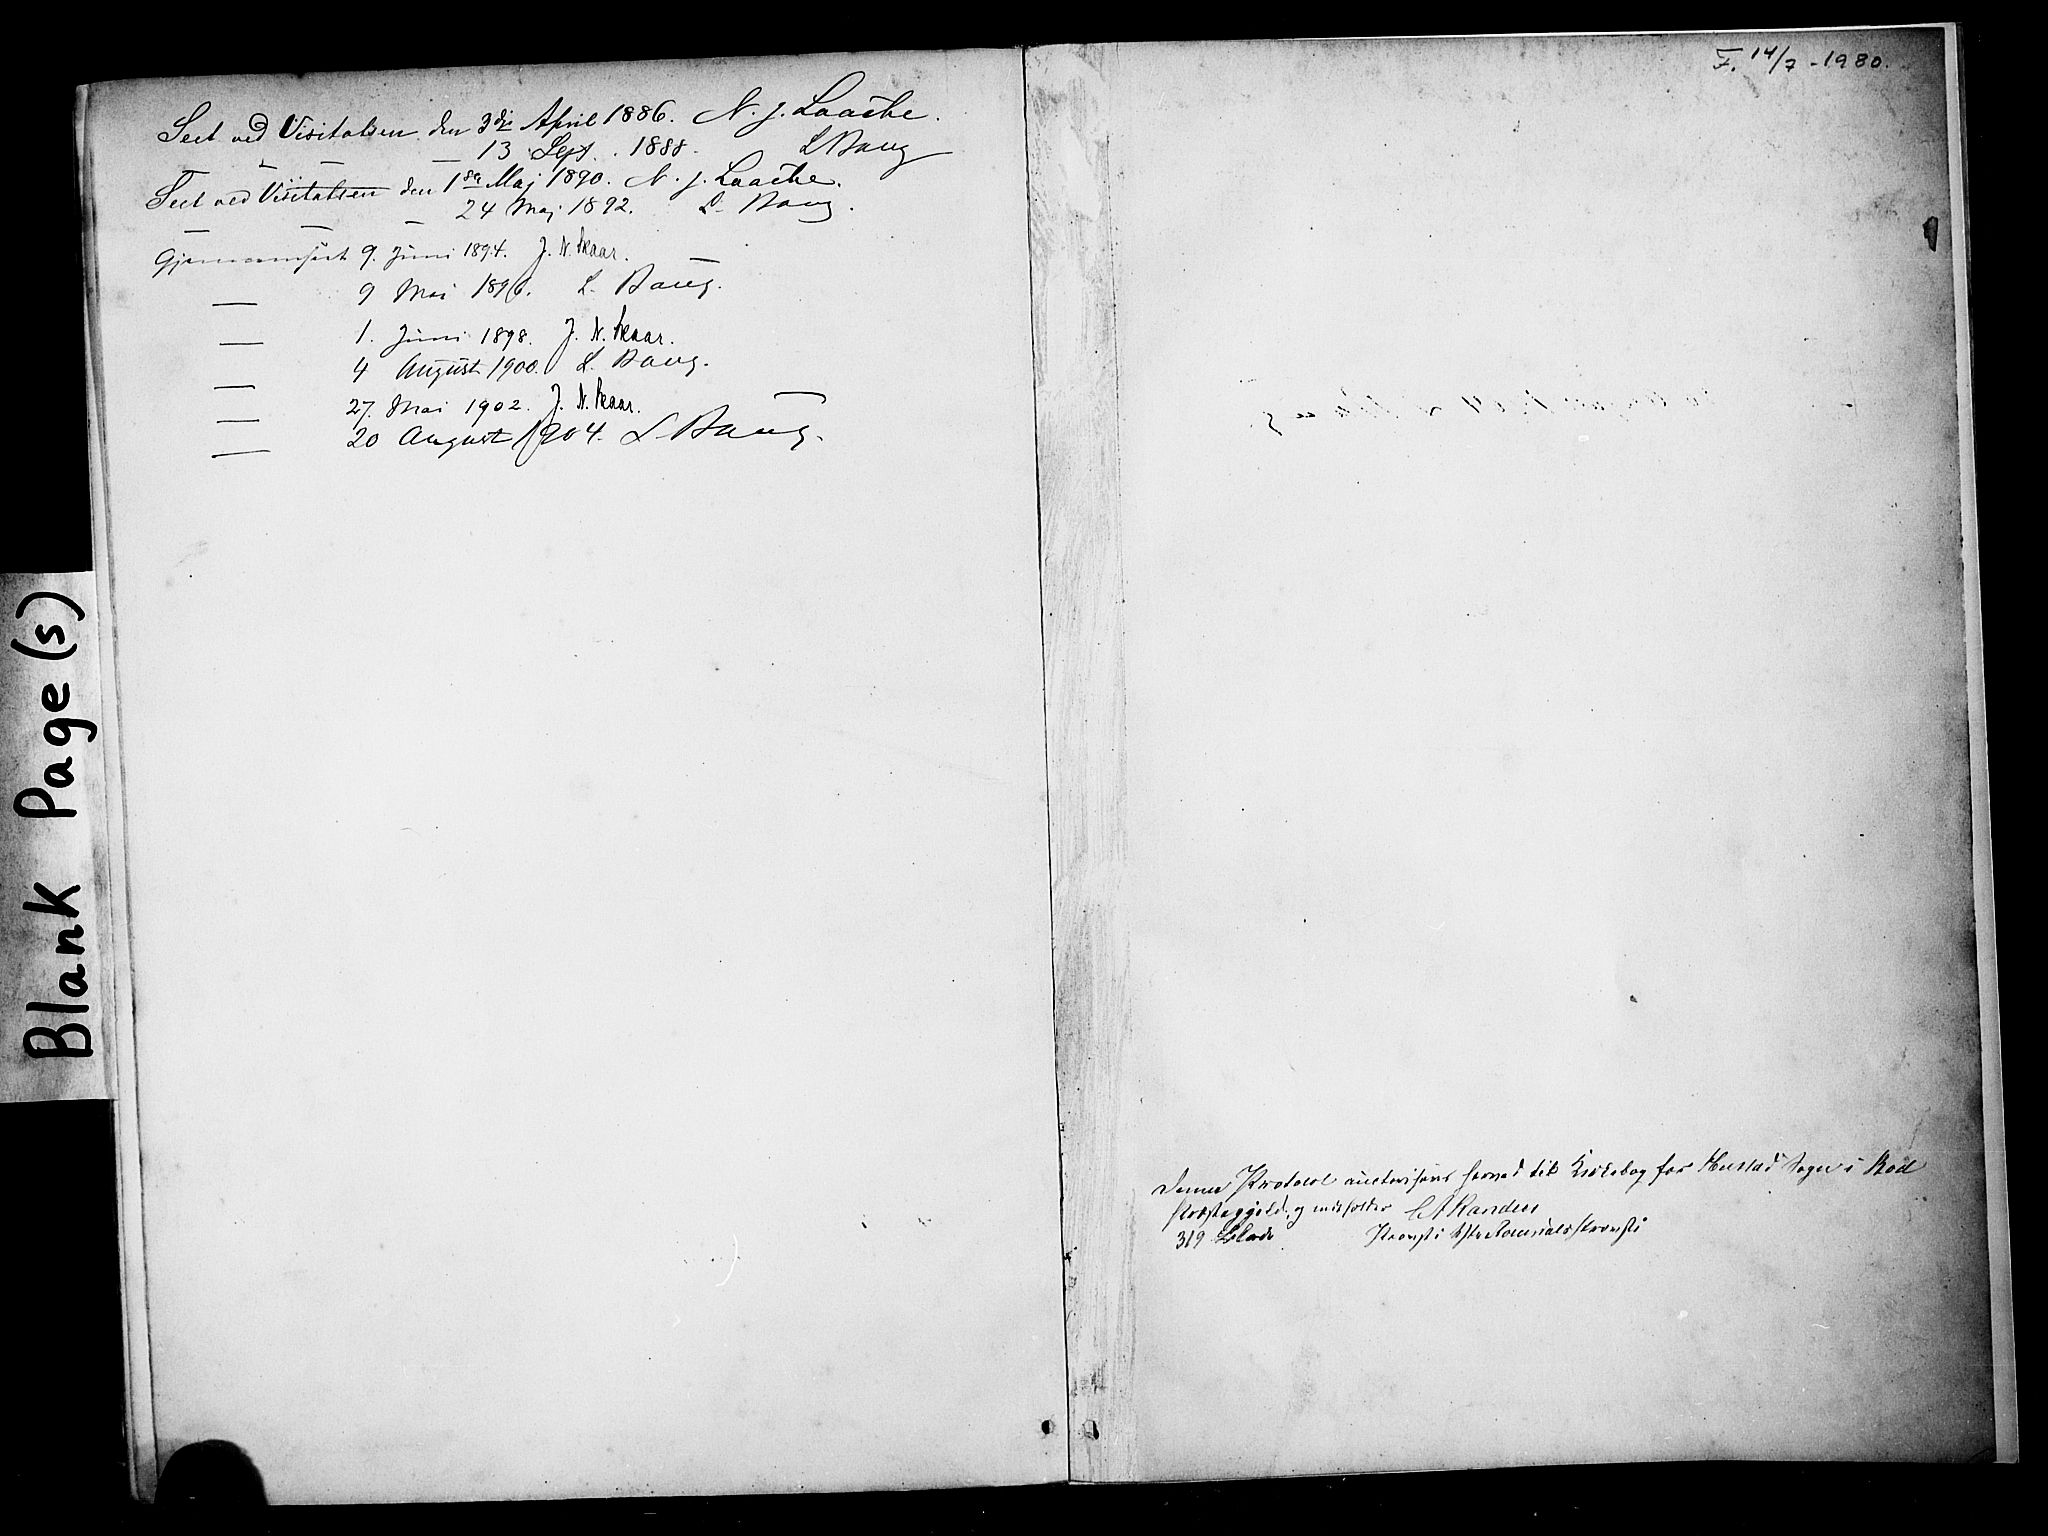 Blank Page(s)
Seet ved Visitatsen den 3die April 1886. N. J. Laache.
— — — 13 Sept. 1888. L Baug
Seet ved Visitatsen den 1ste Maj 1890. N. J. Laache.
— — — 24 Maj 1892. L. Baug.
Gjennemseet 9. Juni 1894. J. N. Skaar.
— 9 Mai 1896. L. Baug.
— 1. Juni 1898. J. N. Skaar.
— 4 August 1900. L. Baug.
— 27. Mai 1902. J. N. Skaar.
— 20 August 1904. L. Baug.
F. 14/7 - 1980.
Denne Protocol auctoriseres herved til Kirkebog for Hustad Sogn i Bod
Præstegjeld, og indeholder
319 Blade